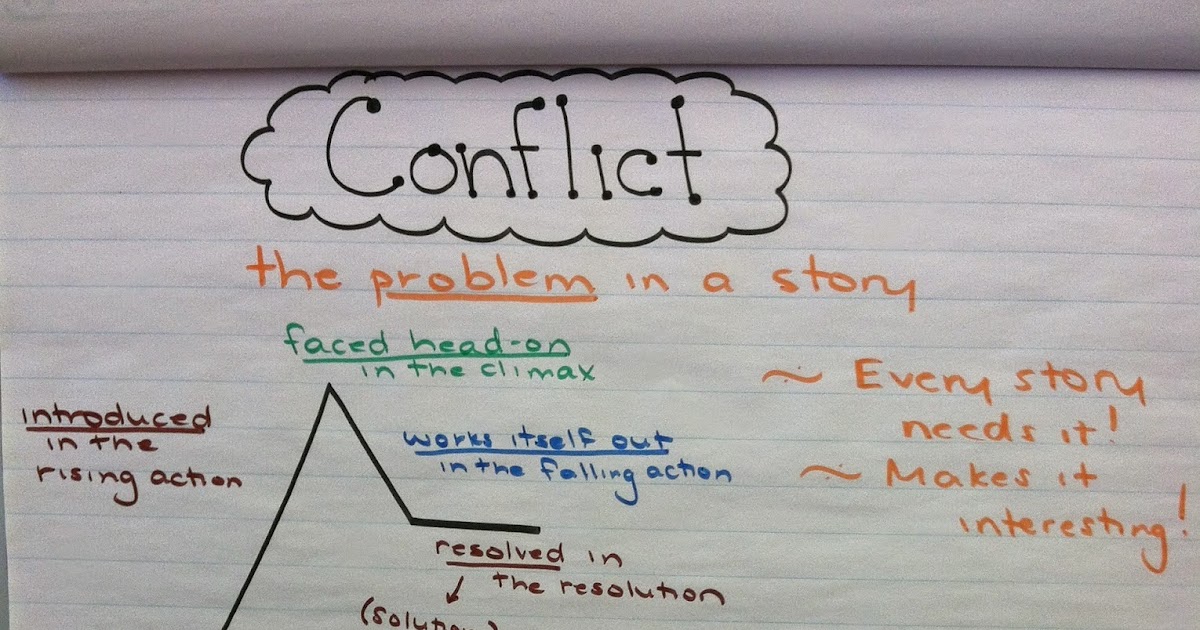 Conflict
the problem in a story
faced head-on
in the climax
introduced
in the
rising action
works itself out
in the falling action
~ Every story
needs it!
~ Makes it
interesting!
resolved in
the resolution
(solution)